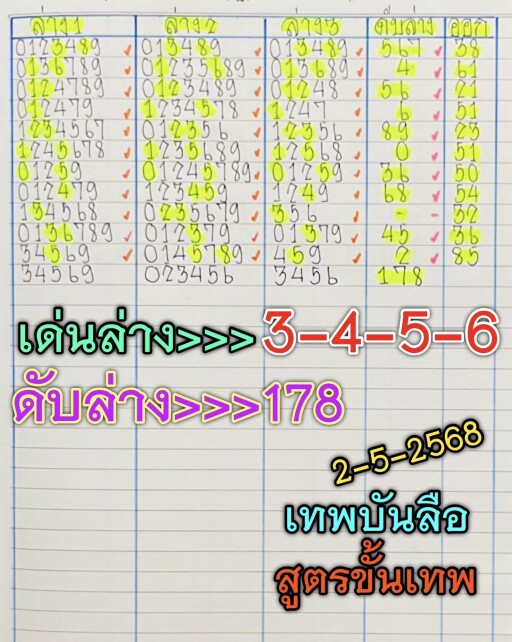 ล่าง1 ล่าง2 ล่าง3 ดับล่าง ออก
0123489 ✓ 013489 ✓ 013489 ✓ 567 ✓ 38
0136789 ✓ 01235689 ✓ 013689 ✓ 4 ✓ 61
0124789 ✓ 0123489 ✓ 01248 ✓ 56 ✓ 21
012479 ✓ 1234578 ✓ 1247 ✓ 6 ✓ 51
1234567 ✓ 012356 ✓ 12356 ✓ 89 ✓ 23
1245678 ✓ 1235689 ✓ 12568 ✓ 0 ✓ 51
01259 ✓ 01245789 ✓ 01259 ✓ 36 ✓ 50
012479 ✓ 123459 ✓ 1249 ✓ 68 ✓ 54
134568 ✓ 0235679 ✓ 356 ✓ - - 32
0136789 ✓ 012379 ✓ 01379 ✓ 45 ✓ 36
34569 ✓ 0145789 ✓ 459 ✓ 2 ✓ 85
34569 023456 3456 178
เด่นล่าง>>> 3-4-5-6
ดับล่าง>>>178
2-5-2568
เทพบันลือ
สูตรขั้นเทพ